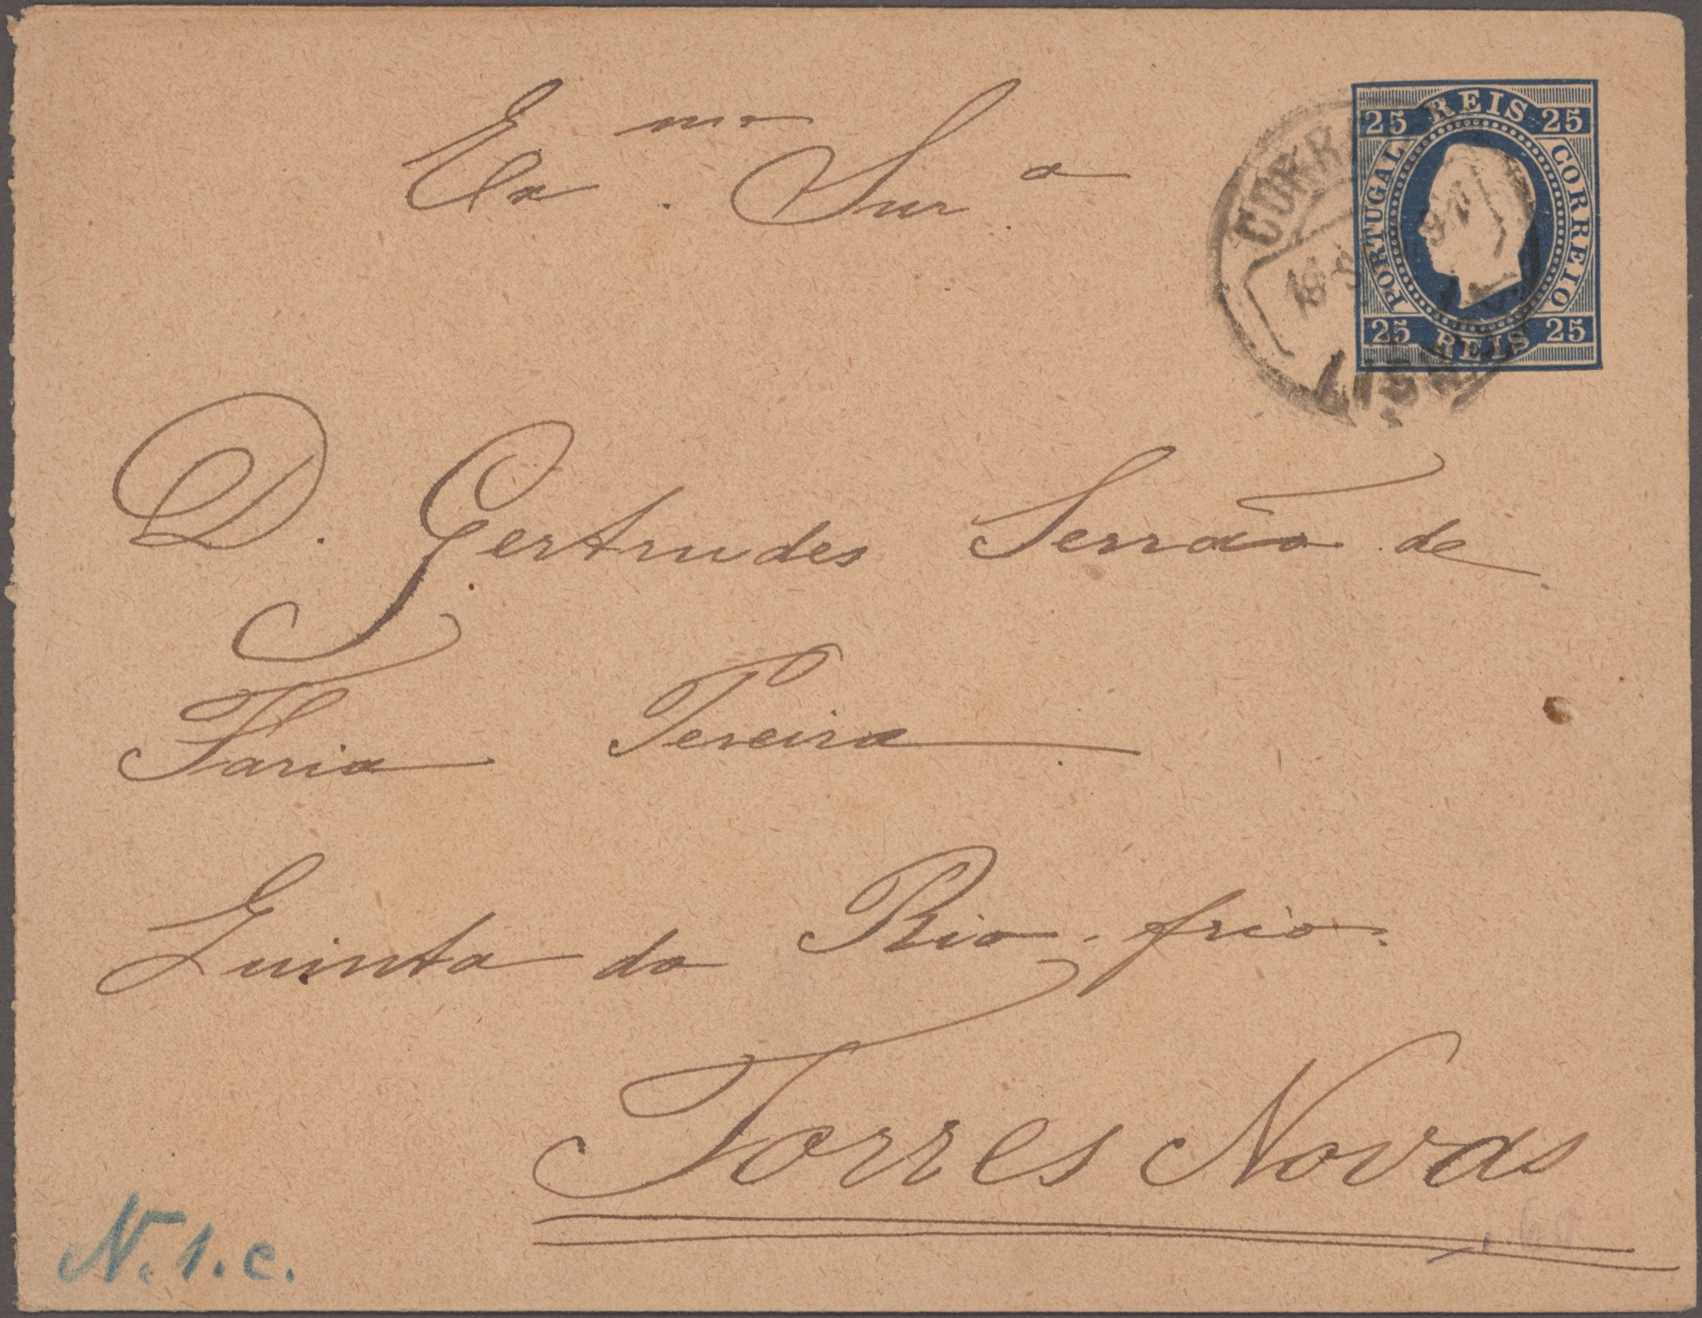 REIS
25 25
PORTUGAL CORREIO
25 25
REIS
97
Ex.mo Snr.a
D. Gertrudes Serrão de
Faria Pereira
Quinta do Rio-frio.
Torres Novas
N.1.c.